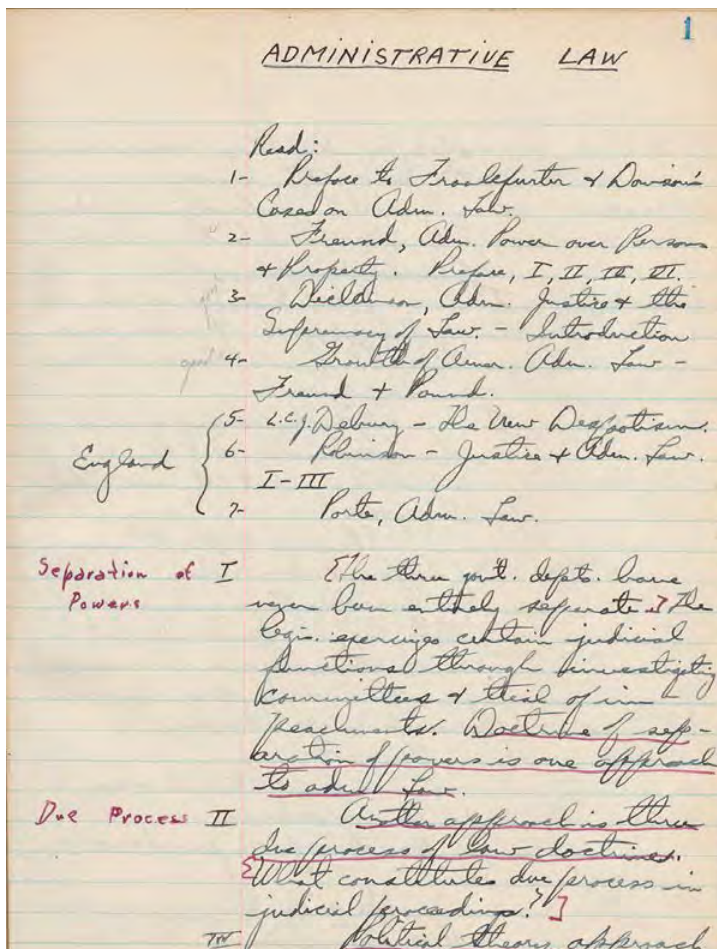 1
ADMINISTRATIVE LAW
Read:
1- Preface to Frankfurter & Davison's
Cases on Adm. Law.
2- Freund, Adm. Power over Persons
& Property. Preface, I, II,
3- Dickinson, Adm. Justice & the
Supremacy of Law. - Introduction
4- Growth of Amer. Adm. Law -
Freund & Pound.
5- L.C.J. - The New Despotism.
England 6- Robinson - Justice & Adm. Law.
I-III
7- Port, Adm. Law.
Separation of I [The three gov't. depts. have
Powers never been entirely separate.] The
legis. exercises certain judicial
functions through investigating
committees & trial of im-
peachments. Doctrine of sep-
aration of powers is one approach
to adm. Law.
Due Process II Another approach is thru
due process of law doctrines.
[What constitutes due process in
judicial proceedings?]
III Political theory approach